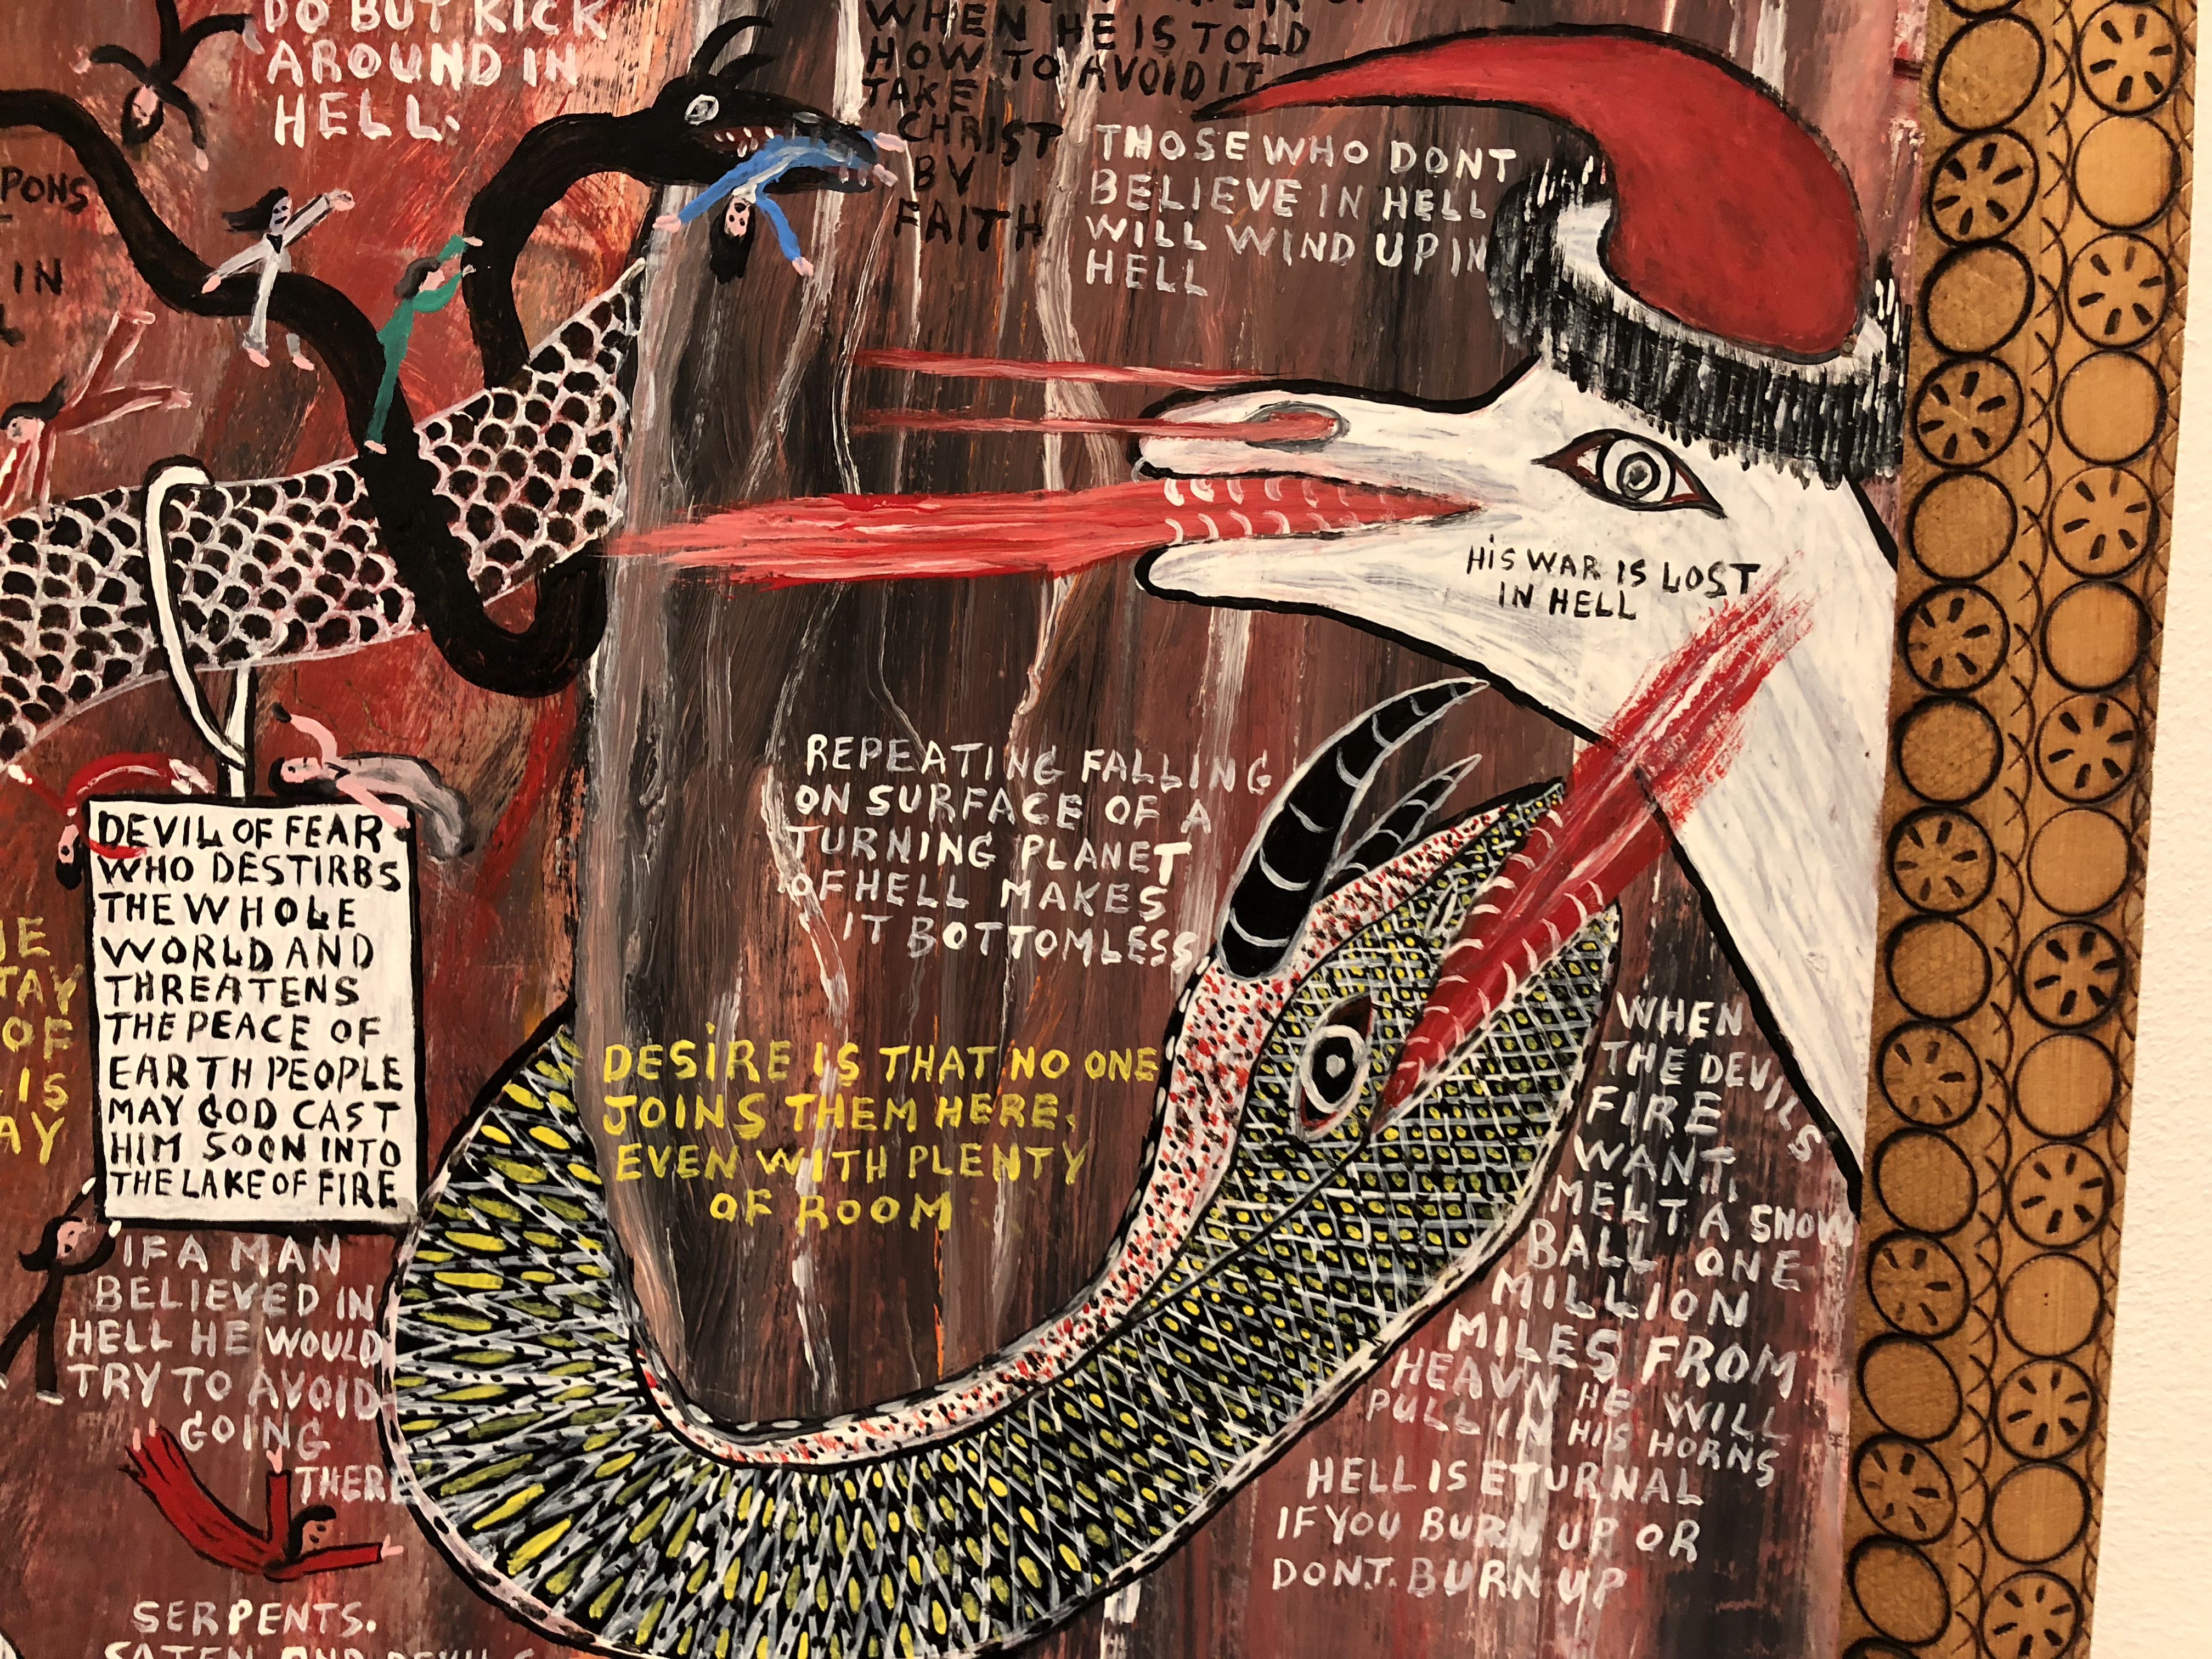 DO BUT KICK
AROUND IN
HELL.
WHEN HE IS TOLD
HOW TO AVOID IT
TAKE
CHRIST
BY
FAITH
THOSE WHO DONT
BELIEVE IN HELL
WILL WIND UP IN
HELL
PONS
IN
HIS WAR IS LOST
IN HELL
REPEATING FALLING
ON SURFACE OF A
TURNING PLANET
OF HELL MAKES
IT BOTTOMLESS
DEVIL OF FEAR
WHO DESTIRBS
THE WHOLE
WORLD AND
THREATENS
THE PEACE OF
EARTH PEOPLE
MAY GOD CAST
HIM SOON INTO
THE LAKE OF FIRE
TAY
OF
IS
AY
DESIRE IS THAT NO ONE
JOINS THEM HERE,
EVEN WITH PLENTY
OF ROOM
WHEN
THE DEVILS
FIRE
WANT,
MELT A SNOW
BALL ONE
MILLION
MILES FROM
HEAVN HE WILL
PULL IN HIS HORNS
IF A MAN
BELIEVED IN
HELL HE WOULD
TRY TO AVOID
GOING
THERE
HELL IS ETURNAL
IF YOU BURN UP OR
DONT. BURN UP
SERPENTS.
SATEN AND DEVILS